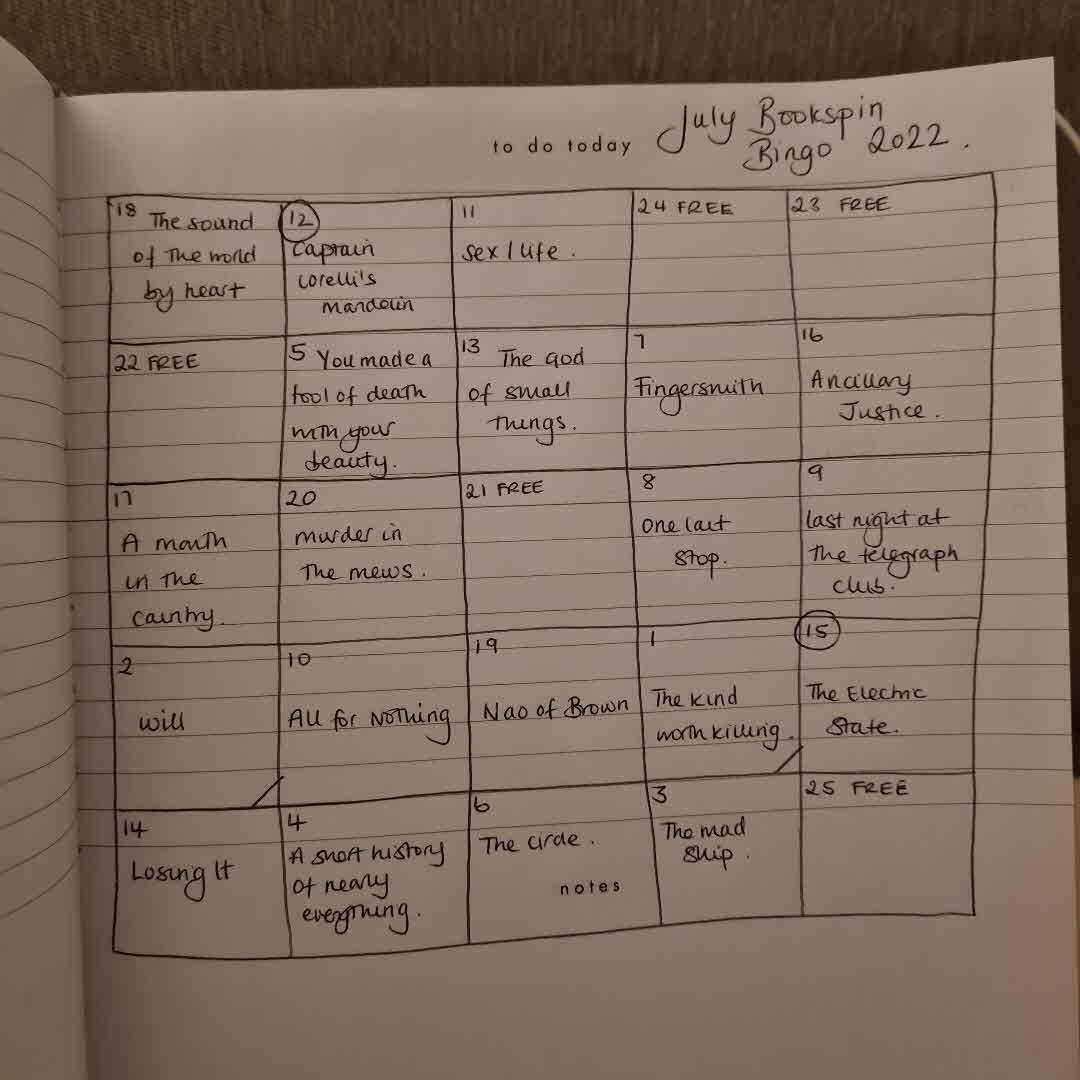 to do today July Bookspin
Bingo 2022.
18 The sound
of the world
by heart
12
Captain
Corelli's
mandolin
11
Sex / life.
24 FREE
23 FREE
22 FREE
5 You made a
fool of death
with your
beauty.
13 The god
of small
things.
7
Fingersmith
16
Ancillary
Justice.
17
A month
in the
country.
20
murder in
the mews.
21 FREE
8
One last
stop.
9
last night at
the telegraph
club.
2
will
10
All for Nothing
19
Nao of Brown
1
The kind
worth killing.
15
The Electric
State.
14
Losing It
4
A short history
of nearly
everything.
6
The circle.
notes
3
The mad
ship.
25 FREE